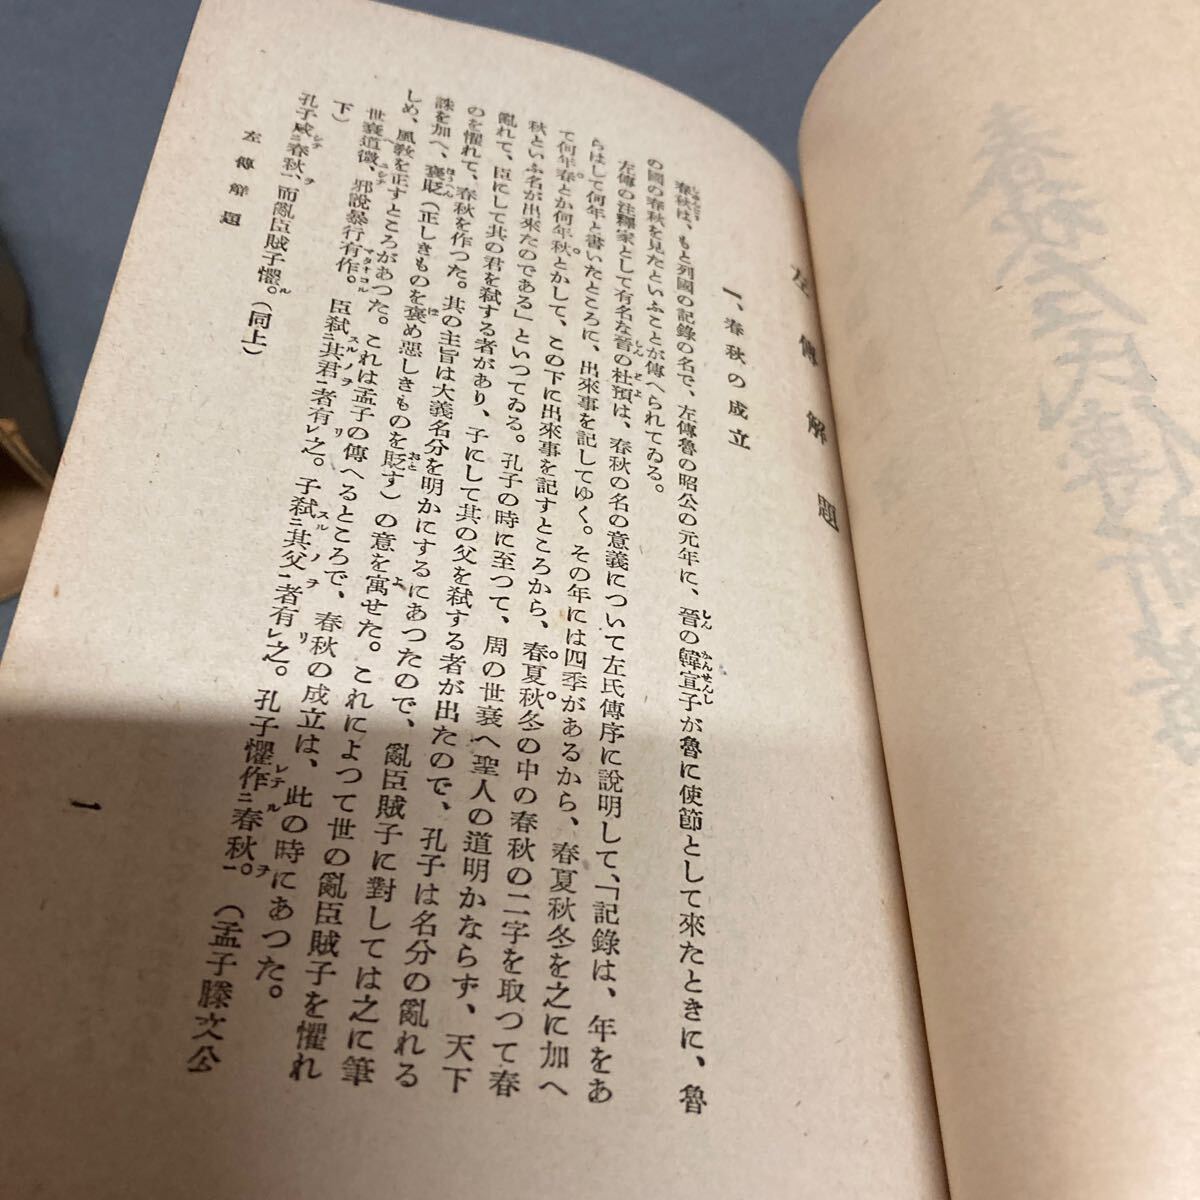 左傳解題
一、春秋の成立
春秋は、もと列國の記錄の名で、左傳魯の昭公の元年に、晉の韓宣子が魯に使節として來たときに、魯
の國の春秋を見たといふことが傳へられてゐる。
左傳の注釋家として有名な晉の杜預は、春秋の名の意義について左氏傳序に說明して、「記錄は、年をあ
らはして何年と書いたところに、出來事を記してゆく。その年には四季があるから、春夏秋冬を之に加へ
て何年春とか何年秋とかして、この下に出來事を記すところから、春夏秋冬の中の春秋の二字を取つて春
秋といふ名が出來たのである」といつてゐる。孔子の時に至つて、周の世衰へ聖人の道明かならず、天下
亂れて、臣にして其の君を弑する者があり、子にして其の父を弑する者が出たので、孔子は名分の亂れる
のを懼れて、春秋を作つた。其の主旨は大義名分を明かにするにあつたので、亂臣賊子に對しては之に筆
誅を加へ、褒貶（正しきものを褒め惡しきものを貶す）の意を寓せた。これによつて世の亂臣賊子を懼れ
しめ、風敎を正すところがあつた。これは孟子の傳へるところで、春秋の成立は、此の時にあつた。
世衰道微、邪說暴行有作。臣弑其君者有之。子弑其父者有之。孔子懼作春秋。（孟子滕文公
下）
孔子成春秋、而亂臣賊子懼。（同上）
左傳解題
一